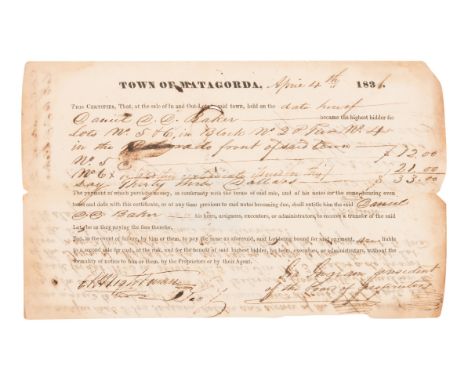 TOWN OF MATAGORDA, April 4th 1836.
THIS CERTIFIES, That, at the sale of In and Out-Lots in said town, held on the date hereof
Daniel C. C. Baker became the highest bidder for
Lots No. 5 & 6, in Block No. 2 No. 4
in the front of said town
No. 5 $ 12.00
No. 6 21.00
Say thirty three Dollars $ 33.00
The payment of which purchase money, as conformity with the terms of said sale, and of his notes for the same bearing even
date with this certificate, or at any time previous to said notes becoming due, shall entitle him the said Daniel
CC Baker his heirs, assignees, executors, or administrators, to receive a transfer of the said
Lots he as they paying the fees therefor.
But, in the event of failure, by him or them, to pay the same as aforesaid, and Lots being bound for said payment, are liable
to a second sale for cash, at the risk, and for the benefit of said highest bidder, his heirs, executors, or administrators, without the
formality of notice to him or them, by the Proprietors or by their Agent.
president
of the Board of Proprietors